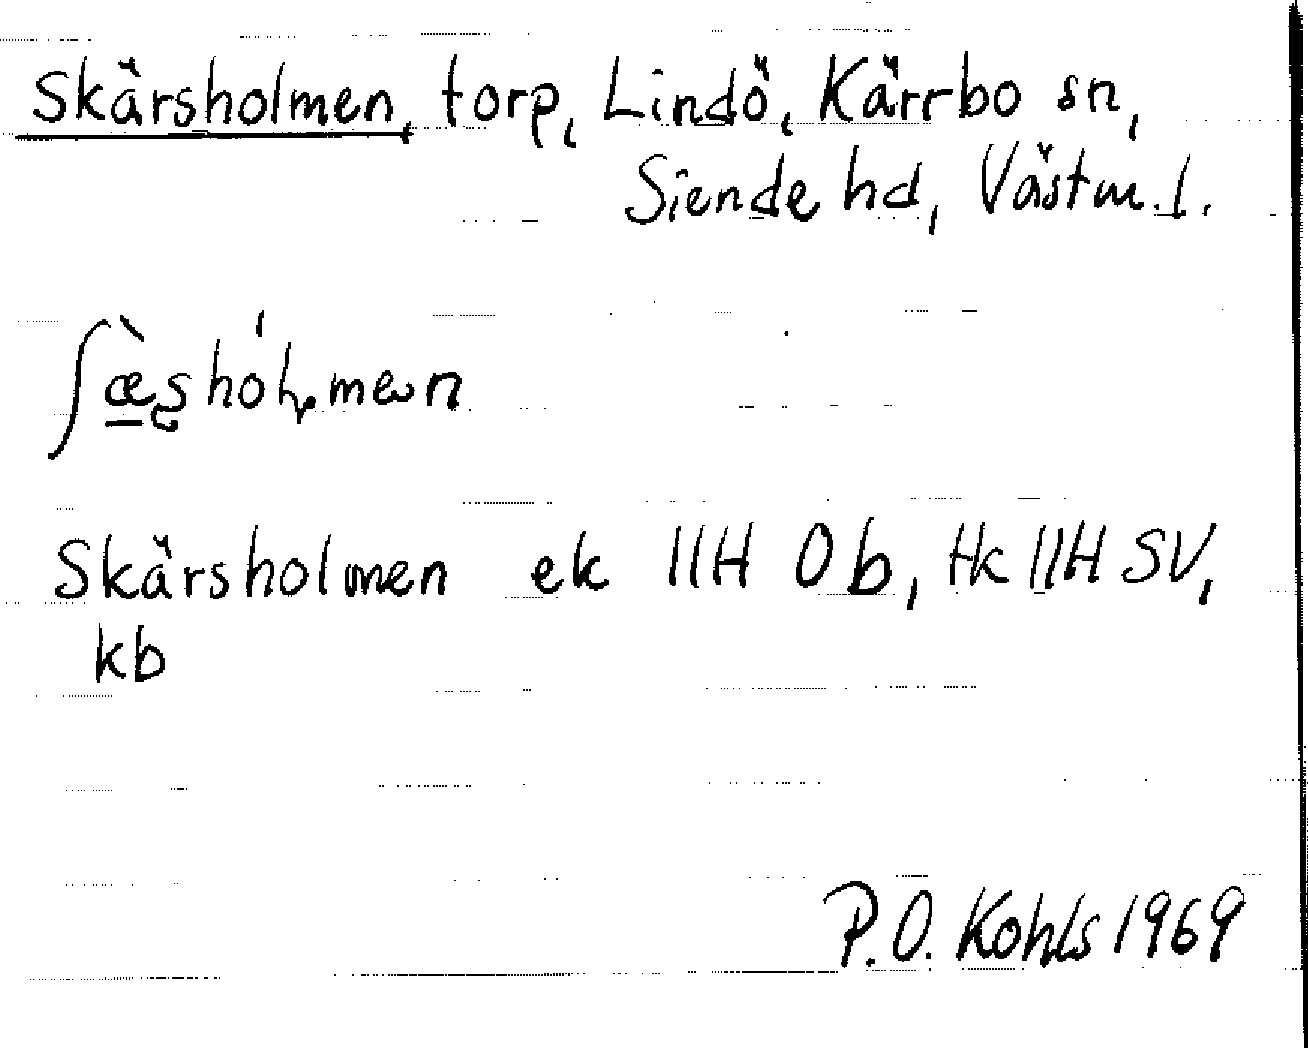 Skärsholmen, torp, Lindö, Kärrbo sn,
Siende hd, Västm.l.
Skärsholmen ek 11H 0b, Hk 11H SV,
kb
P.O. Kohls 1969